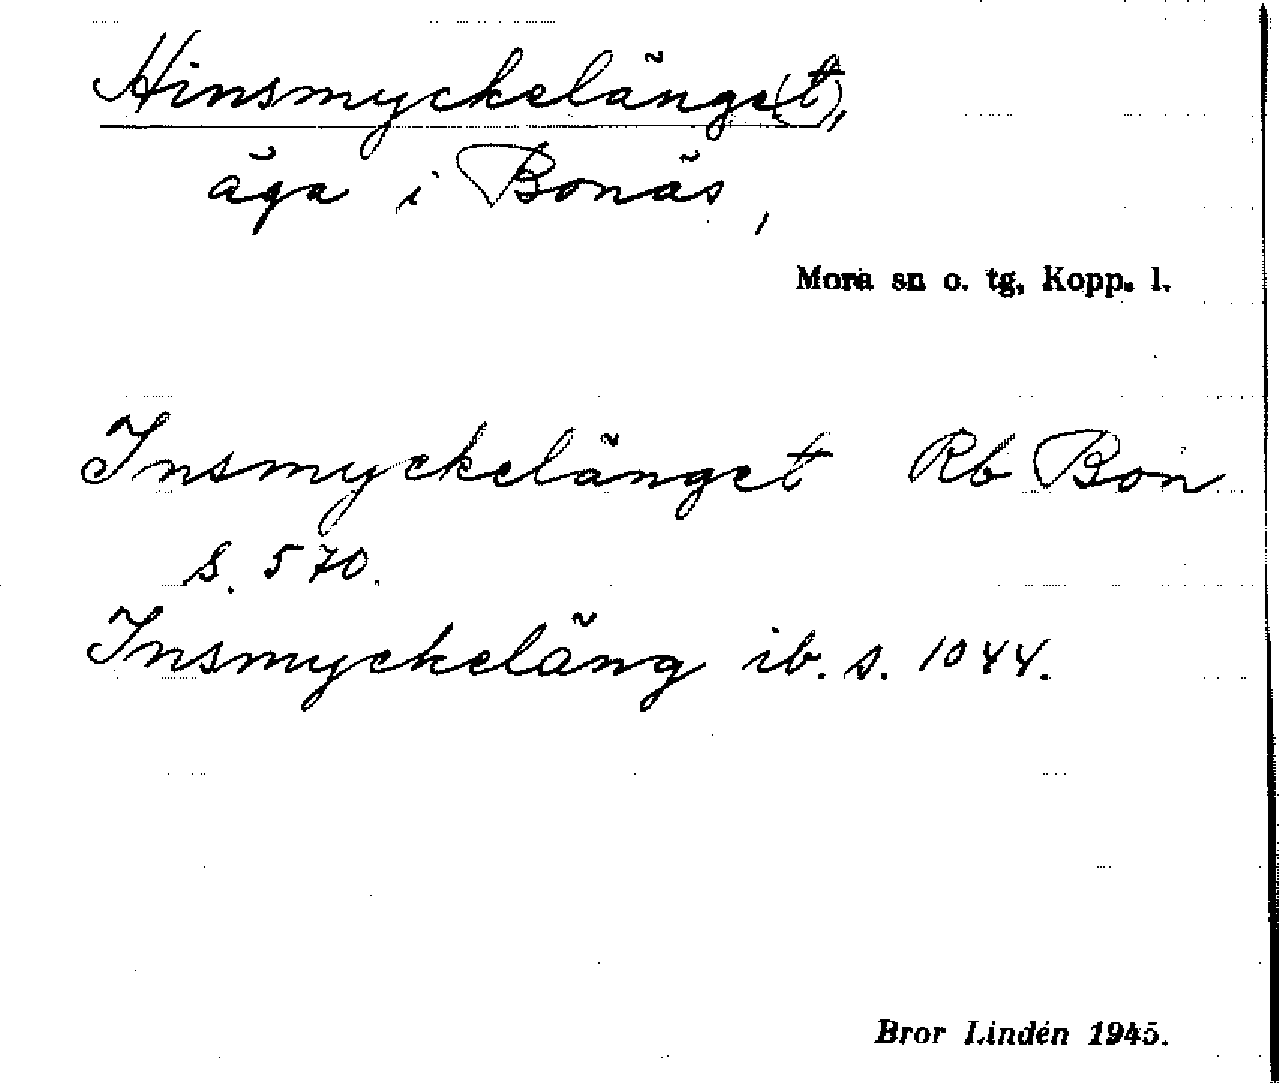 Hinsmyckelänge(t),
äga i Bonäs,
Mora sn o. tg, Kopp. l.
Insmyckelänget Rb Bon
s. 570.
Insmyckeläng ib. s. 1044.
Bror Lindén 1945.